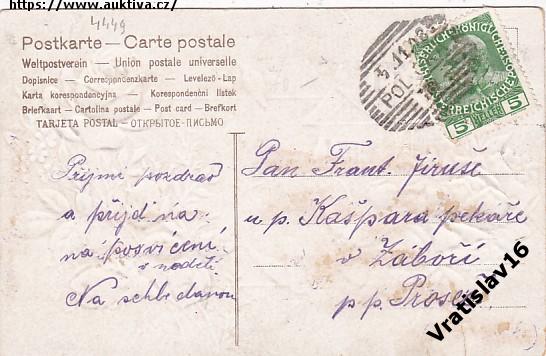 https://www.auktiva.cz/
4449
Postkarte — Carte postale
Weltpostverein — Union postale universelle
Dopisnice — Correspondenzkarte — Levelező-Lap
Karta korespondencyjna — Korespondenční lístek
Briefkaart — Cartolina postale — Post card — Brefkort
TARJETA POSTAL — ОТКРЫТОЕ ПИСЬМО
5
5
Přijmi pozdrav
a přijď na
na posvícení
Na schledanou
Pan Frant. Jiruše
u p. Kašpara pekaře
v Záboří
p. p. Proseč
Vratislav16